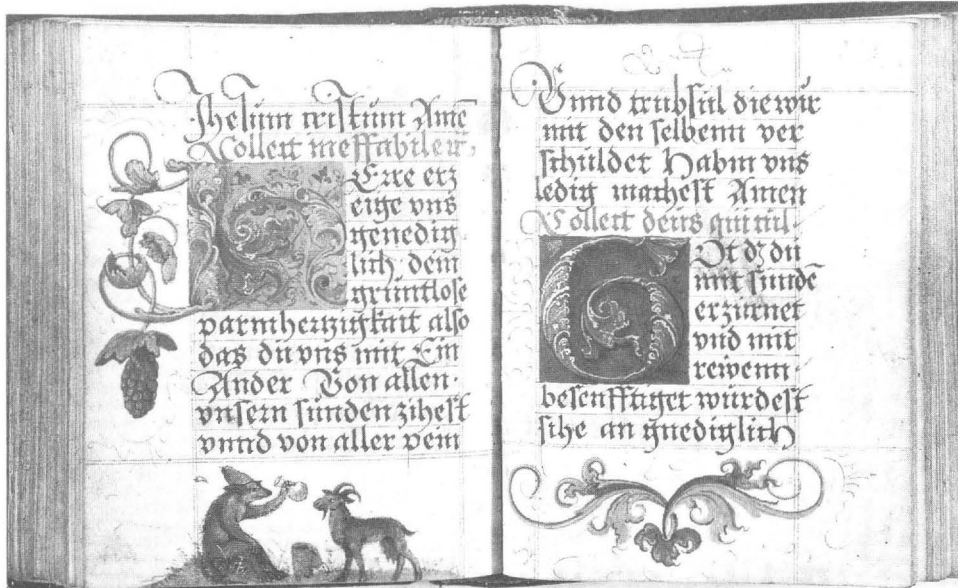 Jhesum cristum Amē
Collect ineffabilem
HErre erz
eige vns
genedig
lich dem
gruntlose
parmhertzigkait also
das du vns mit Ein
Ander Von allen
vnsern sunden zihest
vnnd von aller pein
Vnnd trubsal die wir
mit den selbenn ver
schuldet Habm vns
ledig machest Amen
Collect deus qui cul
GOt dz du
mit sundē
erzurnet
vnd mit
rewenn
besenfftiget wurdest
sihe an gnediglich